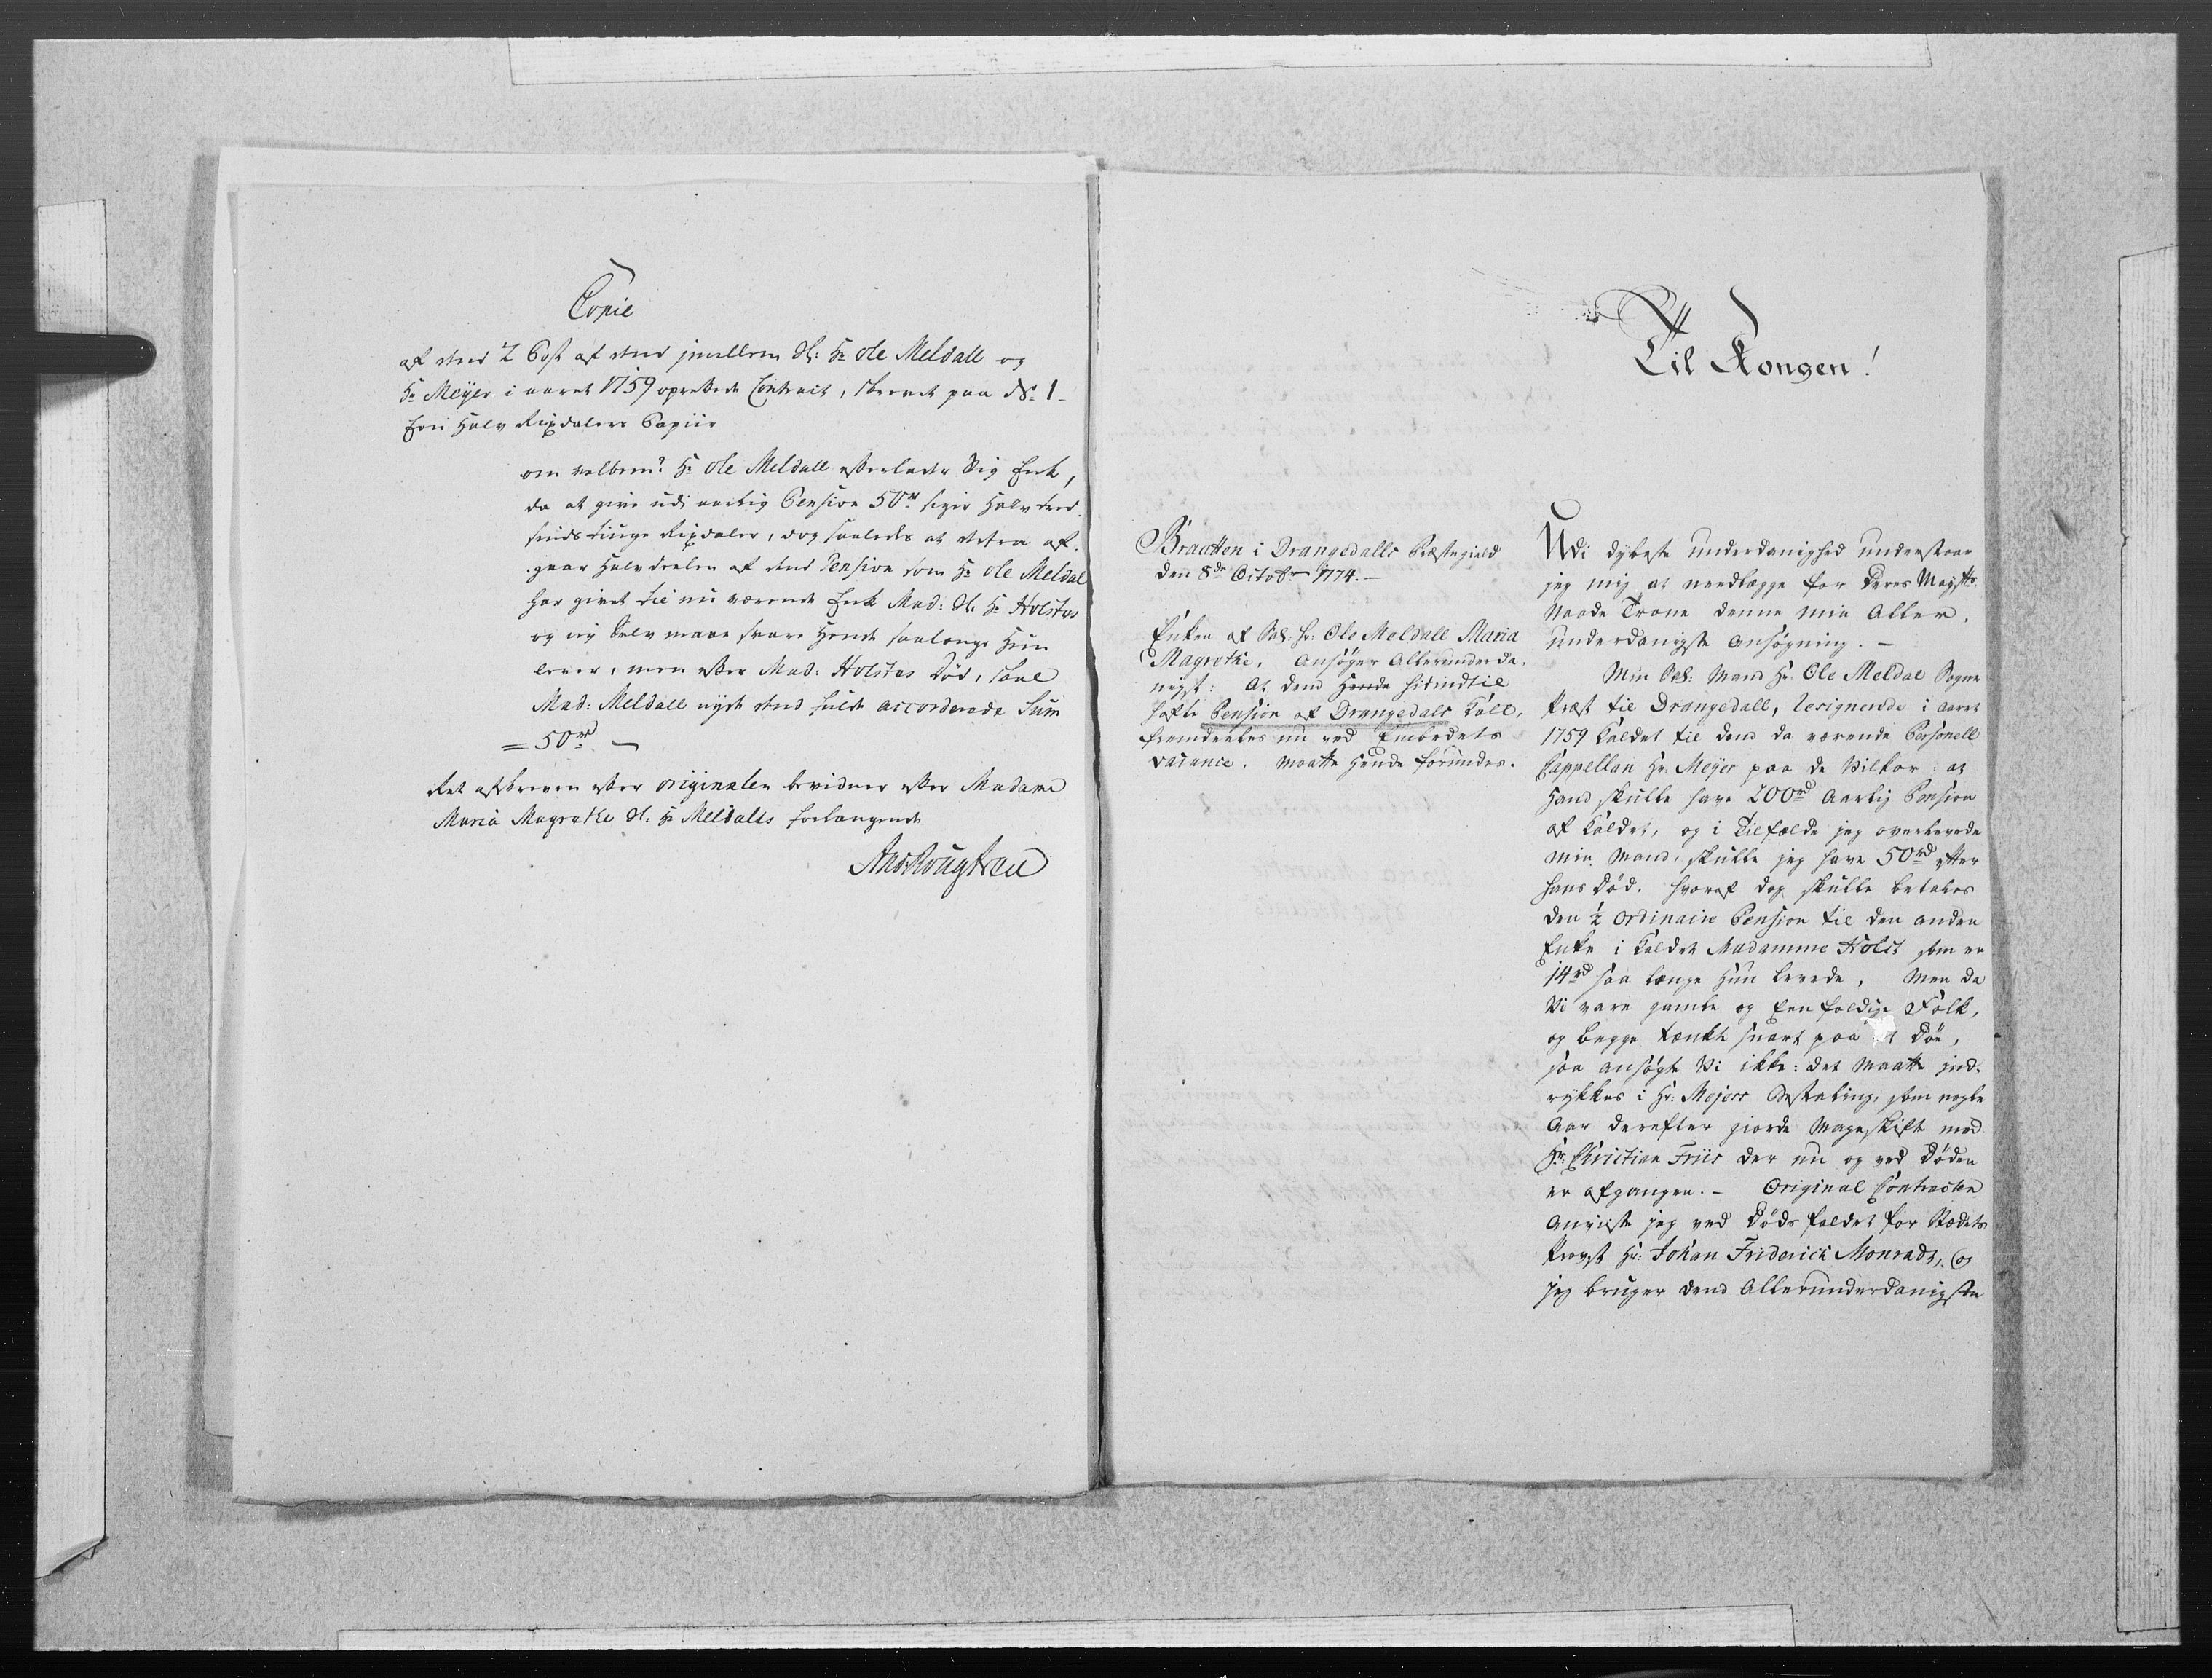 Copie
af den 2 Post af den imellem Sl: Hr Ole Meldall og
Hr Meyer i aaret 1759 oprettede Contract, skrevet paa No 1
fori Halv Rixdalers Papiir
om velbemte Hr Ole Meldall efterlader Sig Enk,
da at give udi aarlig Pension 50rd siger Halvtred
sinds tiuge Rixdaler, dog saaledes at derfra af
gaar Halvdeelen af den Pension som Hr Ole Meldal
har givet til nu værende Enk Mad: Sl. Hr Holstes
og jeg Selv maae svare Hende saalænge Hun
lever, men efter Mad: Holstes Død, skal
Mad: Meldall nyde den fulde accorderede Sum
= 50rd
Ret afskreven efter originalen bevidner efter Madame
Maria Magrethe Sl. Hr Meldalls forlangende
Til Kongen!
Braatten i Drangedalls Præstegield
den 8de Octobr 1774.
Enken af Sal: Hr: Ole Meldall Maria
Magrethe, ansøger Allerunderda-
nigst: At dend Hende hidindtil
hafte Pension af Drangedals Kald,
fremdeeles nu ved Embedets
vacance, maatte Hende forundes.
Udi dybeste underdanighed understaar
jeg mig at needlægge for Deres Maysts
Naade Trone denne min Aller-
underdanigste ansøgning. -
Min Sal: Mand Hr. Ole Meldal Sogne
Præst til Drangedall, resignerede i aaret
1759 Kaldet til dend da værende Personell
Cappellan Hr. Meyer paa de Vilkor: at
Hand skulle have 200rd Aarlig Pension
af Kaldet, og i Tilfælde jeg overlevede
min Mand, skulle jeg have 50rd efter
hans Død. hvoraf dog skulle betales
den 1/2 ordinaire Pension til den anden
Enke i Kaldet Madamme Holst som er
14rd saa længe Hun levede, Men da
Vi vare gamle og Eenfoldige Folk,
og begge tænkte snart paa at Døe,
saa ansøgte Vi ikke: det maatte ind-
rykkes i Hr: Mejers Bestaling, som nogle
Aar derefter giorde Mageskifte med
Hr: Christian Friis der nu og ved Døden
er afgangen. - Original Contracten
anviiste jeg ved Dødsfaldet for Stædets
Provst Hr: Johan Friderich Monrads, og
jeg bruger dend Allerunderdanigste